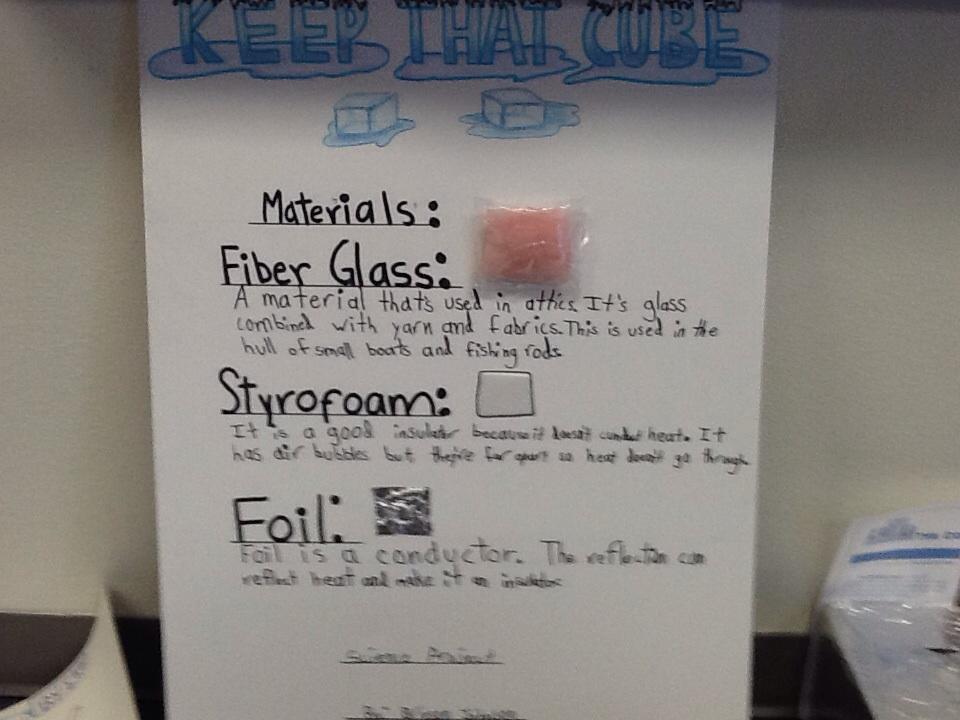 KEEP THAT CUBE
Materials:
Fiber Glass:
A material that's used in attics. It's glass
combined with yarn and fabrics. This is used in the
hull of small boats and fishing rods
Styrofoam:
It is a good insulator because it doesn't conduct heat. It
has air bubbles but they're far apart so heat doesn't go through
Foil:
Foil is a conductor. The reflection can
reflect heat and make it an insulator
Science Project
By: